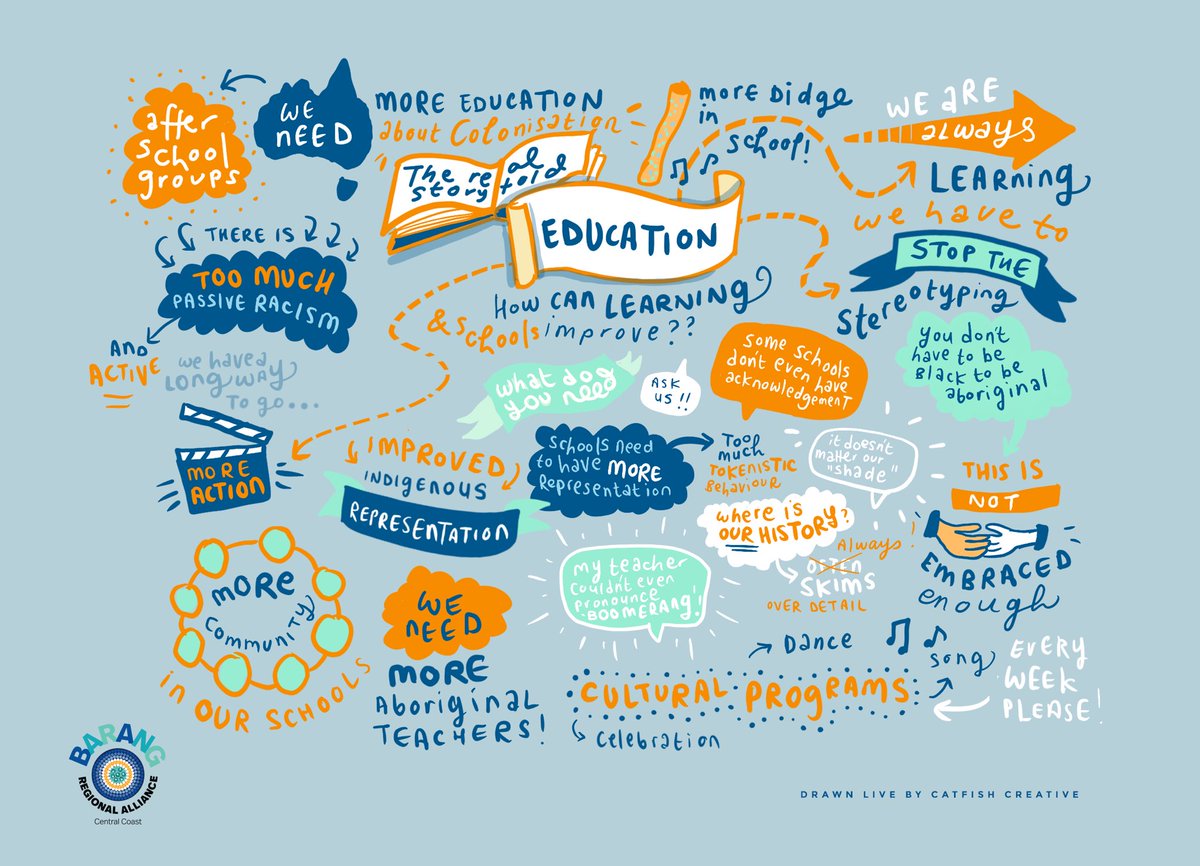 after
school
groups
WE
NEED
MORE EDUCATION
about Colonisation
The real
story told
EDUCATION
more Didge
in
School!
WE ARE
always
LEARNING
we have to
STOP THE
Stereotyping
THERE IS
TOO MUCH
PASSIVE RACISM
AND
ACTIVE
we have a
LONG WAY
TO go...
How CAN LEARNING
& Schools improve??
what doo
you need
ASK
US!!
Some Schools
don't even have
acknowledgement
you don't
have to be
Black to be
aboriginal
MORE
ACTION
IMPROVED
INDIGENOUS
REPRESENTATION
Schools need
to have MORE
Representation
Too
much
TOKENISTIC
Behaviour
it doesn't
matter our
"shade"
THIS IS
NOT
EMBRACED
enough
where is
OUR HISTORY?
Always!
OFTEN
SKIMS
OVER DETAIL
my teacher
Couldn't even
pronounce
BOOMERANG!
MORE
Community
in OUR SCHOOLS
WE
NEED
MORE
Aboriginal
TEACHERS!
Dance
Song
CULTURAL PROGRAMS
Celebration
EVERY
WEEK
PLEASE!
BARANG
REGIONAL ALLIANCE
Central Coast
DRAWN LIVE BY CATFISH CREATIVE